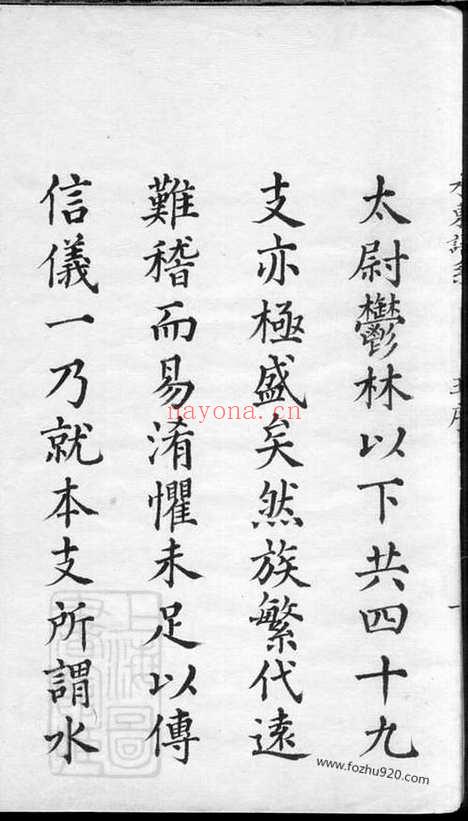 太尉鬱林以下共四十九
支亦極盛矣然族繁代遠
難稽而易淆懼未足以傳
信儀一乃就本支所謂水
nayona.cn
www.fozhu920.com